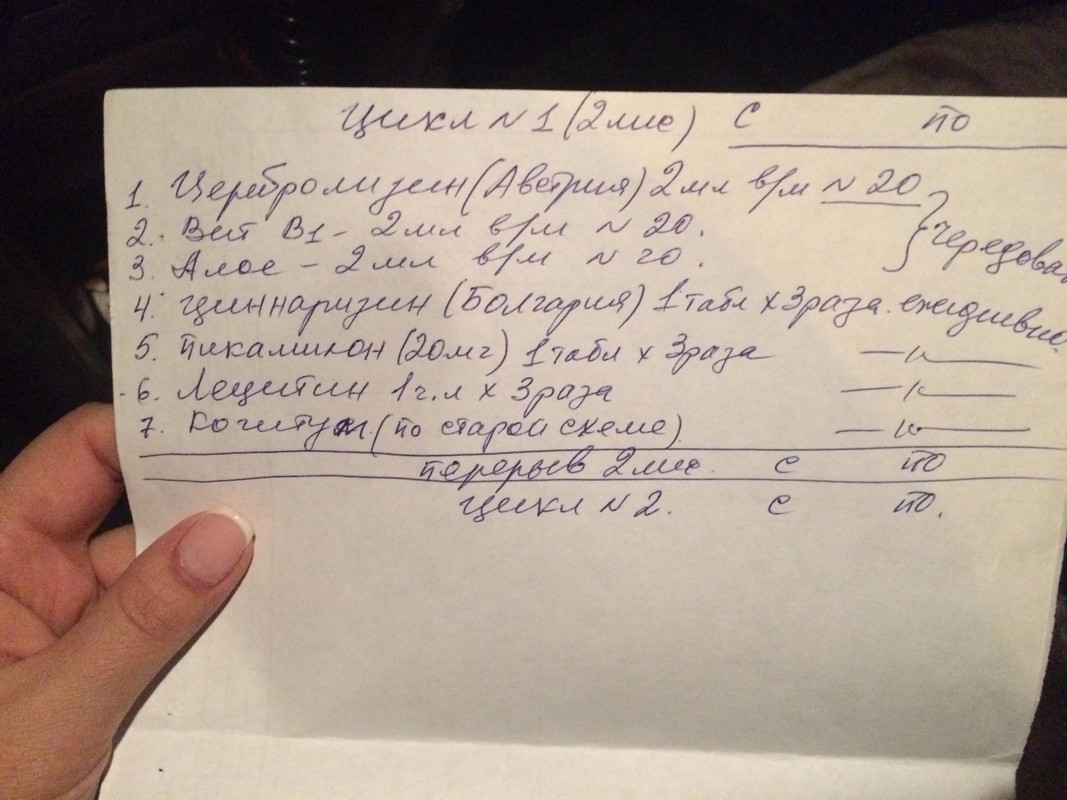 Цикл N1 (2 мес) с по
1. Церебролизин (Австрия) 2 мл в/м N 20
2. Вит B1 - 2 мл в/м N 20. } чередова
3. Алое - 2 мл в/м N 20.
4. Циннаризин (Болгария) 1 табл x 3 раза. ежедневно.
5. Пикамилон (20 мг) 1 табл x 3 раза —〃—
6. Лецитин 1 ч.л x 3 раза —〃—
7. Когитум (по старой схеме) —〃—
перерыв 2 мес. с по
Цикл N 2. с по.